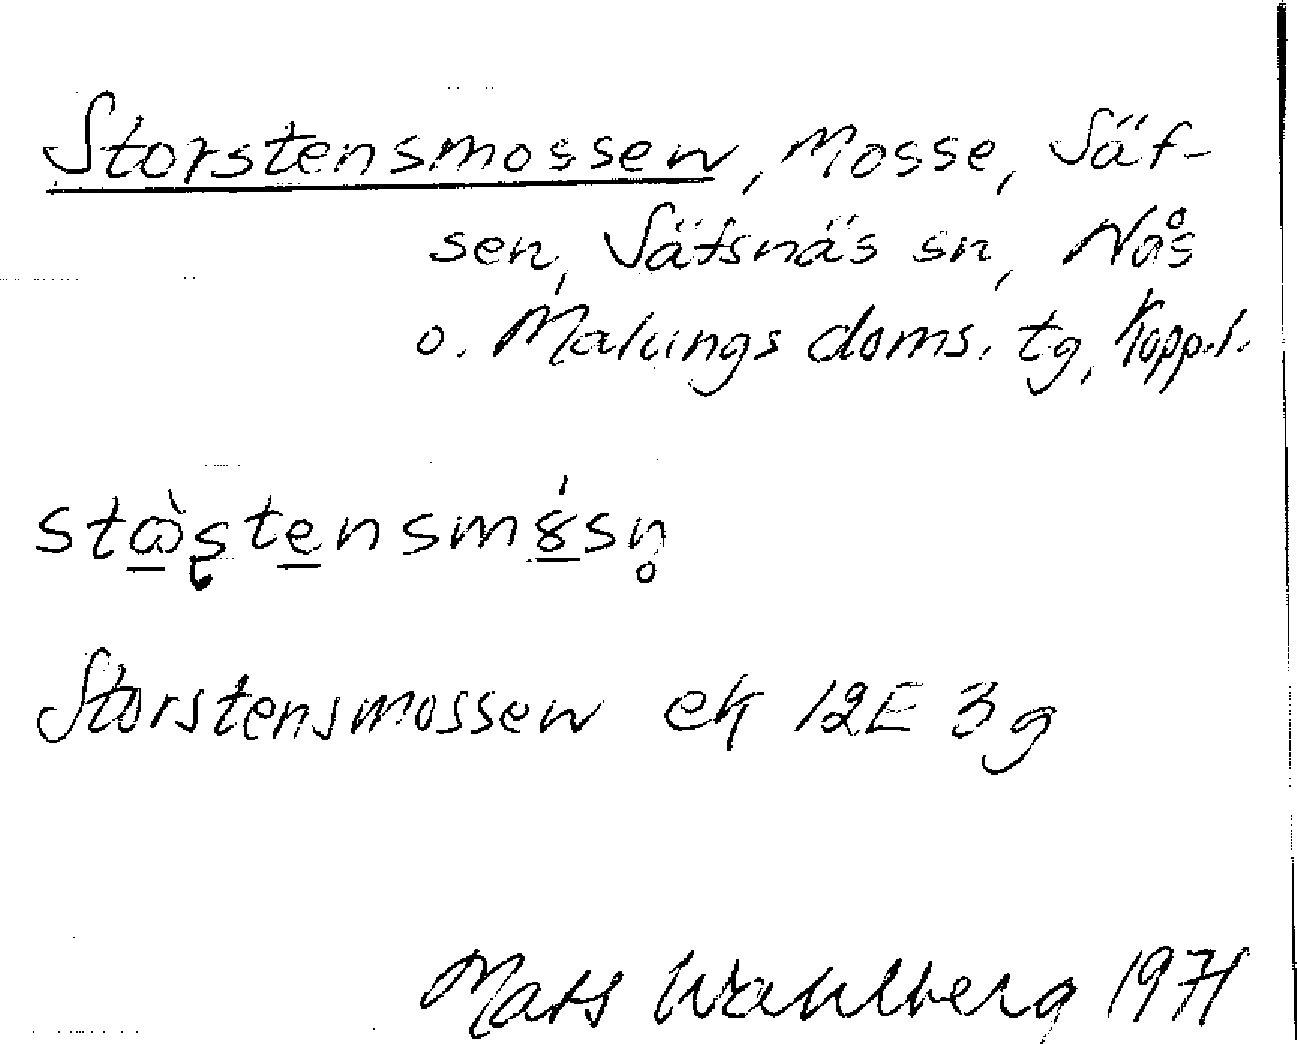 Storstensmossen, Mosse, Säf-
sen, Säfsnäs sn, Nås
o. Malungs doms. tg, Kopp.l.
stὼ̲ʂte̲nsm8̲́sn̥
Storstensmossen ek 12E 3g
Mats Wahlberg 1971